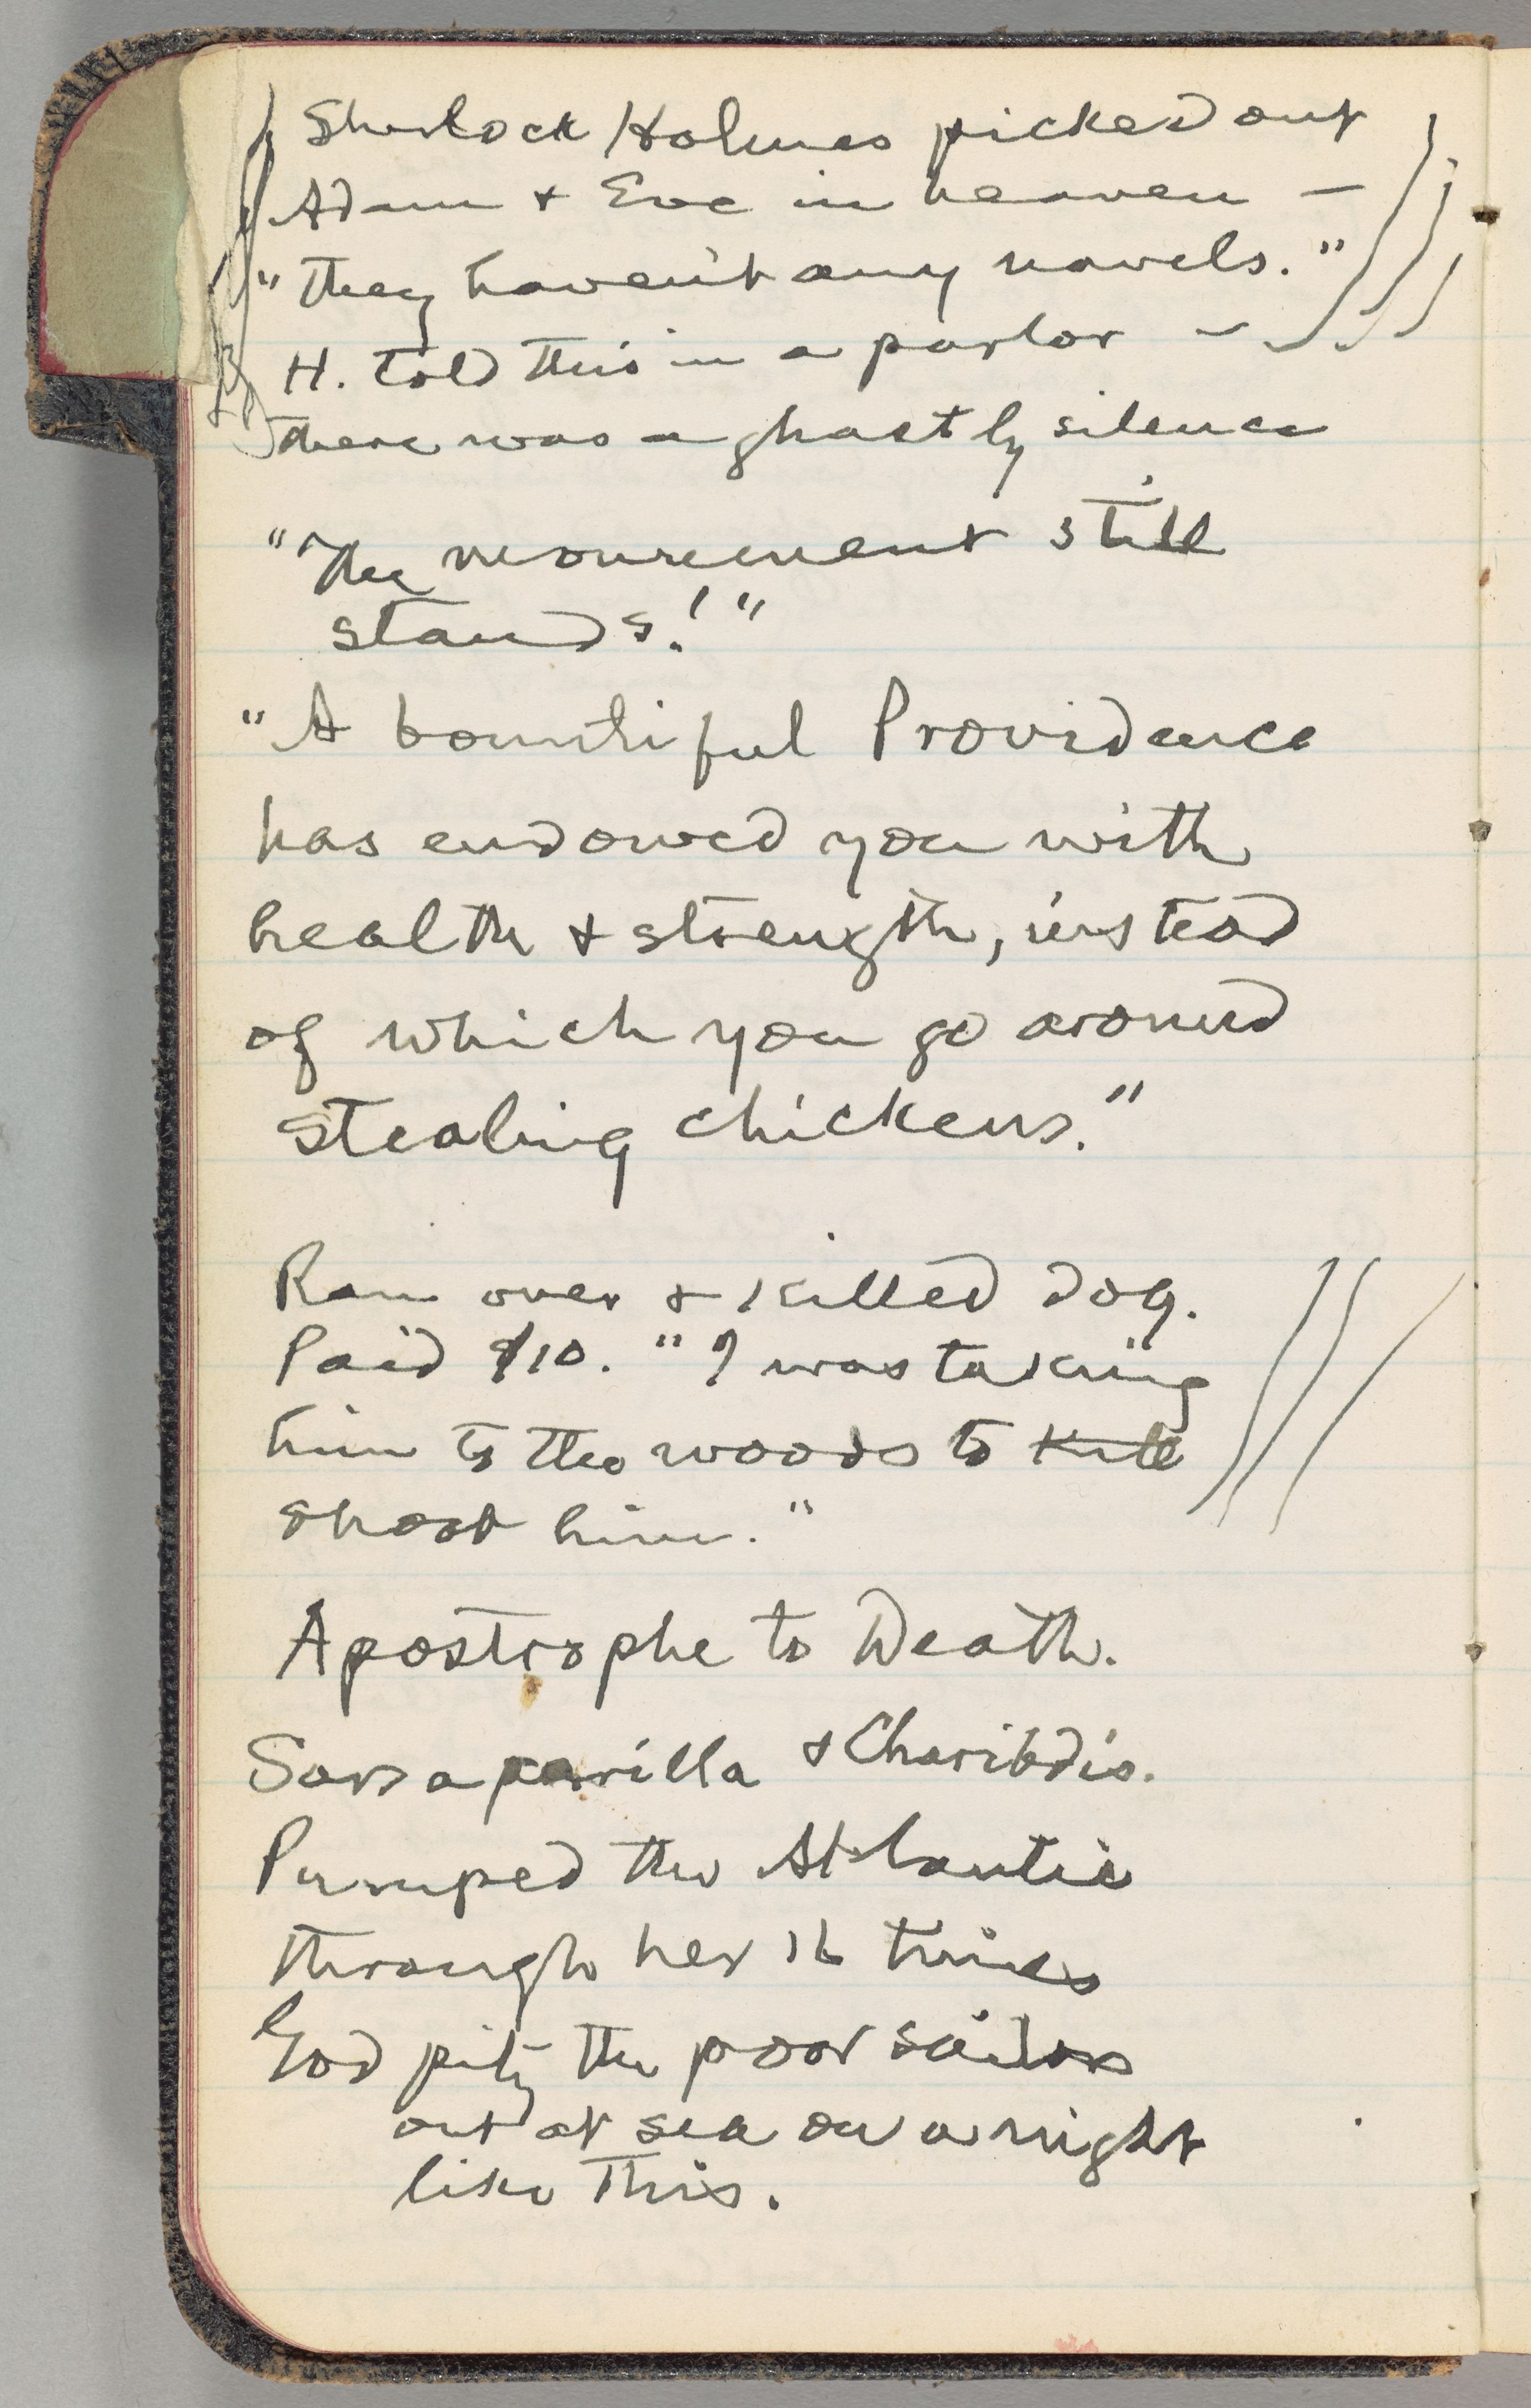 Sherlock Holmes picked out
Adam + Eve in heaven —
"They haven't any navels."
H. told this in a parlor —
There was a ghastly silence
"The monument still
stands!"
"A bountiful Providence
has endowed you with
health + strength, instead
of which you go around
stealing chickens."
Ran over + killed dog.
Paid $10. "I was taking
him to the woods to kill
shoot him."
Apostrophe to Death.
Sarsaparilla + Charibdis.
Pumped the Atlantic
through her 16 times
God pity the poor sailors
out at sea on a night
like this.